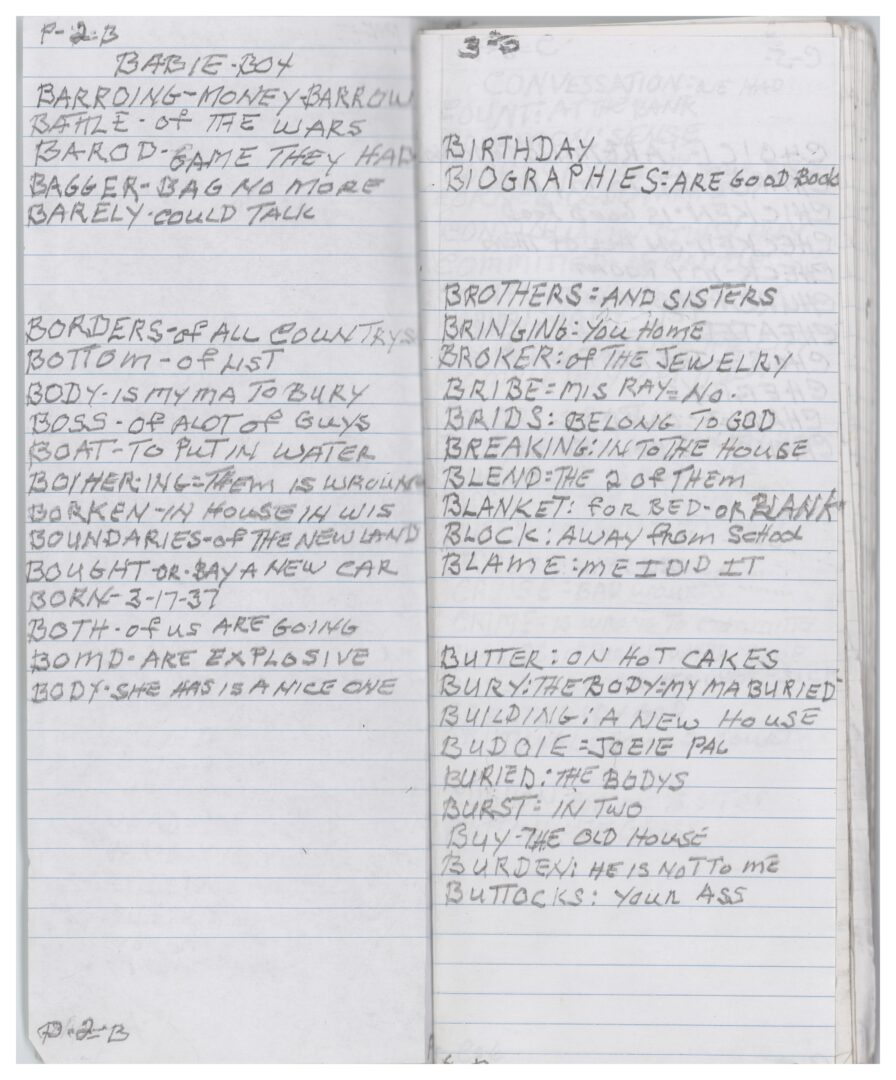 P-2-B
BABIE-BOY
BARROING-MONEY-BARROW
BATTLE-of THE WARS
BAROD-GAME THEY HAD
BAGGER-BAG NO MORE
BARELY-COULD TALK
BORDERS-of ALL COUNTRYS
BOTTOM-of LIST
BODY-IS MY MA TO BURY
BOSS-OF ALOT of GUYS
BOAT-TO PUT IN WATER
BOTHER:ING=THEM IS WROUNG
BORKEN-IN HOUSE IN WIS
BOUNDARIES-of THE NEW LAND
BOUGHT-OR-BAY A NEW CAR
BORN-3-17-37
BOTH-of us ARE GOING
BOMD-ARE EXPLOSIVE
BODY-SHE HAS IS A NICE ONE
P-2-B
BIRTHDAY
BIOGRAPHIES=ARE GOOD BOOK
BROTHERS=AND SISTERS
BRINGING:YOU HOME
BROKER:of THE JEWELRY
BRIBE=MIS RAY=NO.
BRIDS:BELONG TO GOD
BREAKING:INTO THE HOUSE
BLEND=THE 2 OF THEM
BLANKET: for BED-OR BLANK
BLOCK:AWAY from School
BLAME:ME I DID IT
BUTTER:ON HOT CAKES
BURY:THE BODY=MY MA BURIED
BUILDING:A NEW HOUSE
BUDOIE=JOEIE PAL
BURIED:THE BODYS
BURST=IN TWO
BUY-THE OLD HOUSE
BURDEN:HE IS NOT TO ME
BUTTOCKS: YOUR ASS